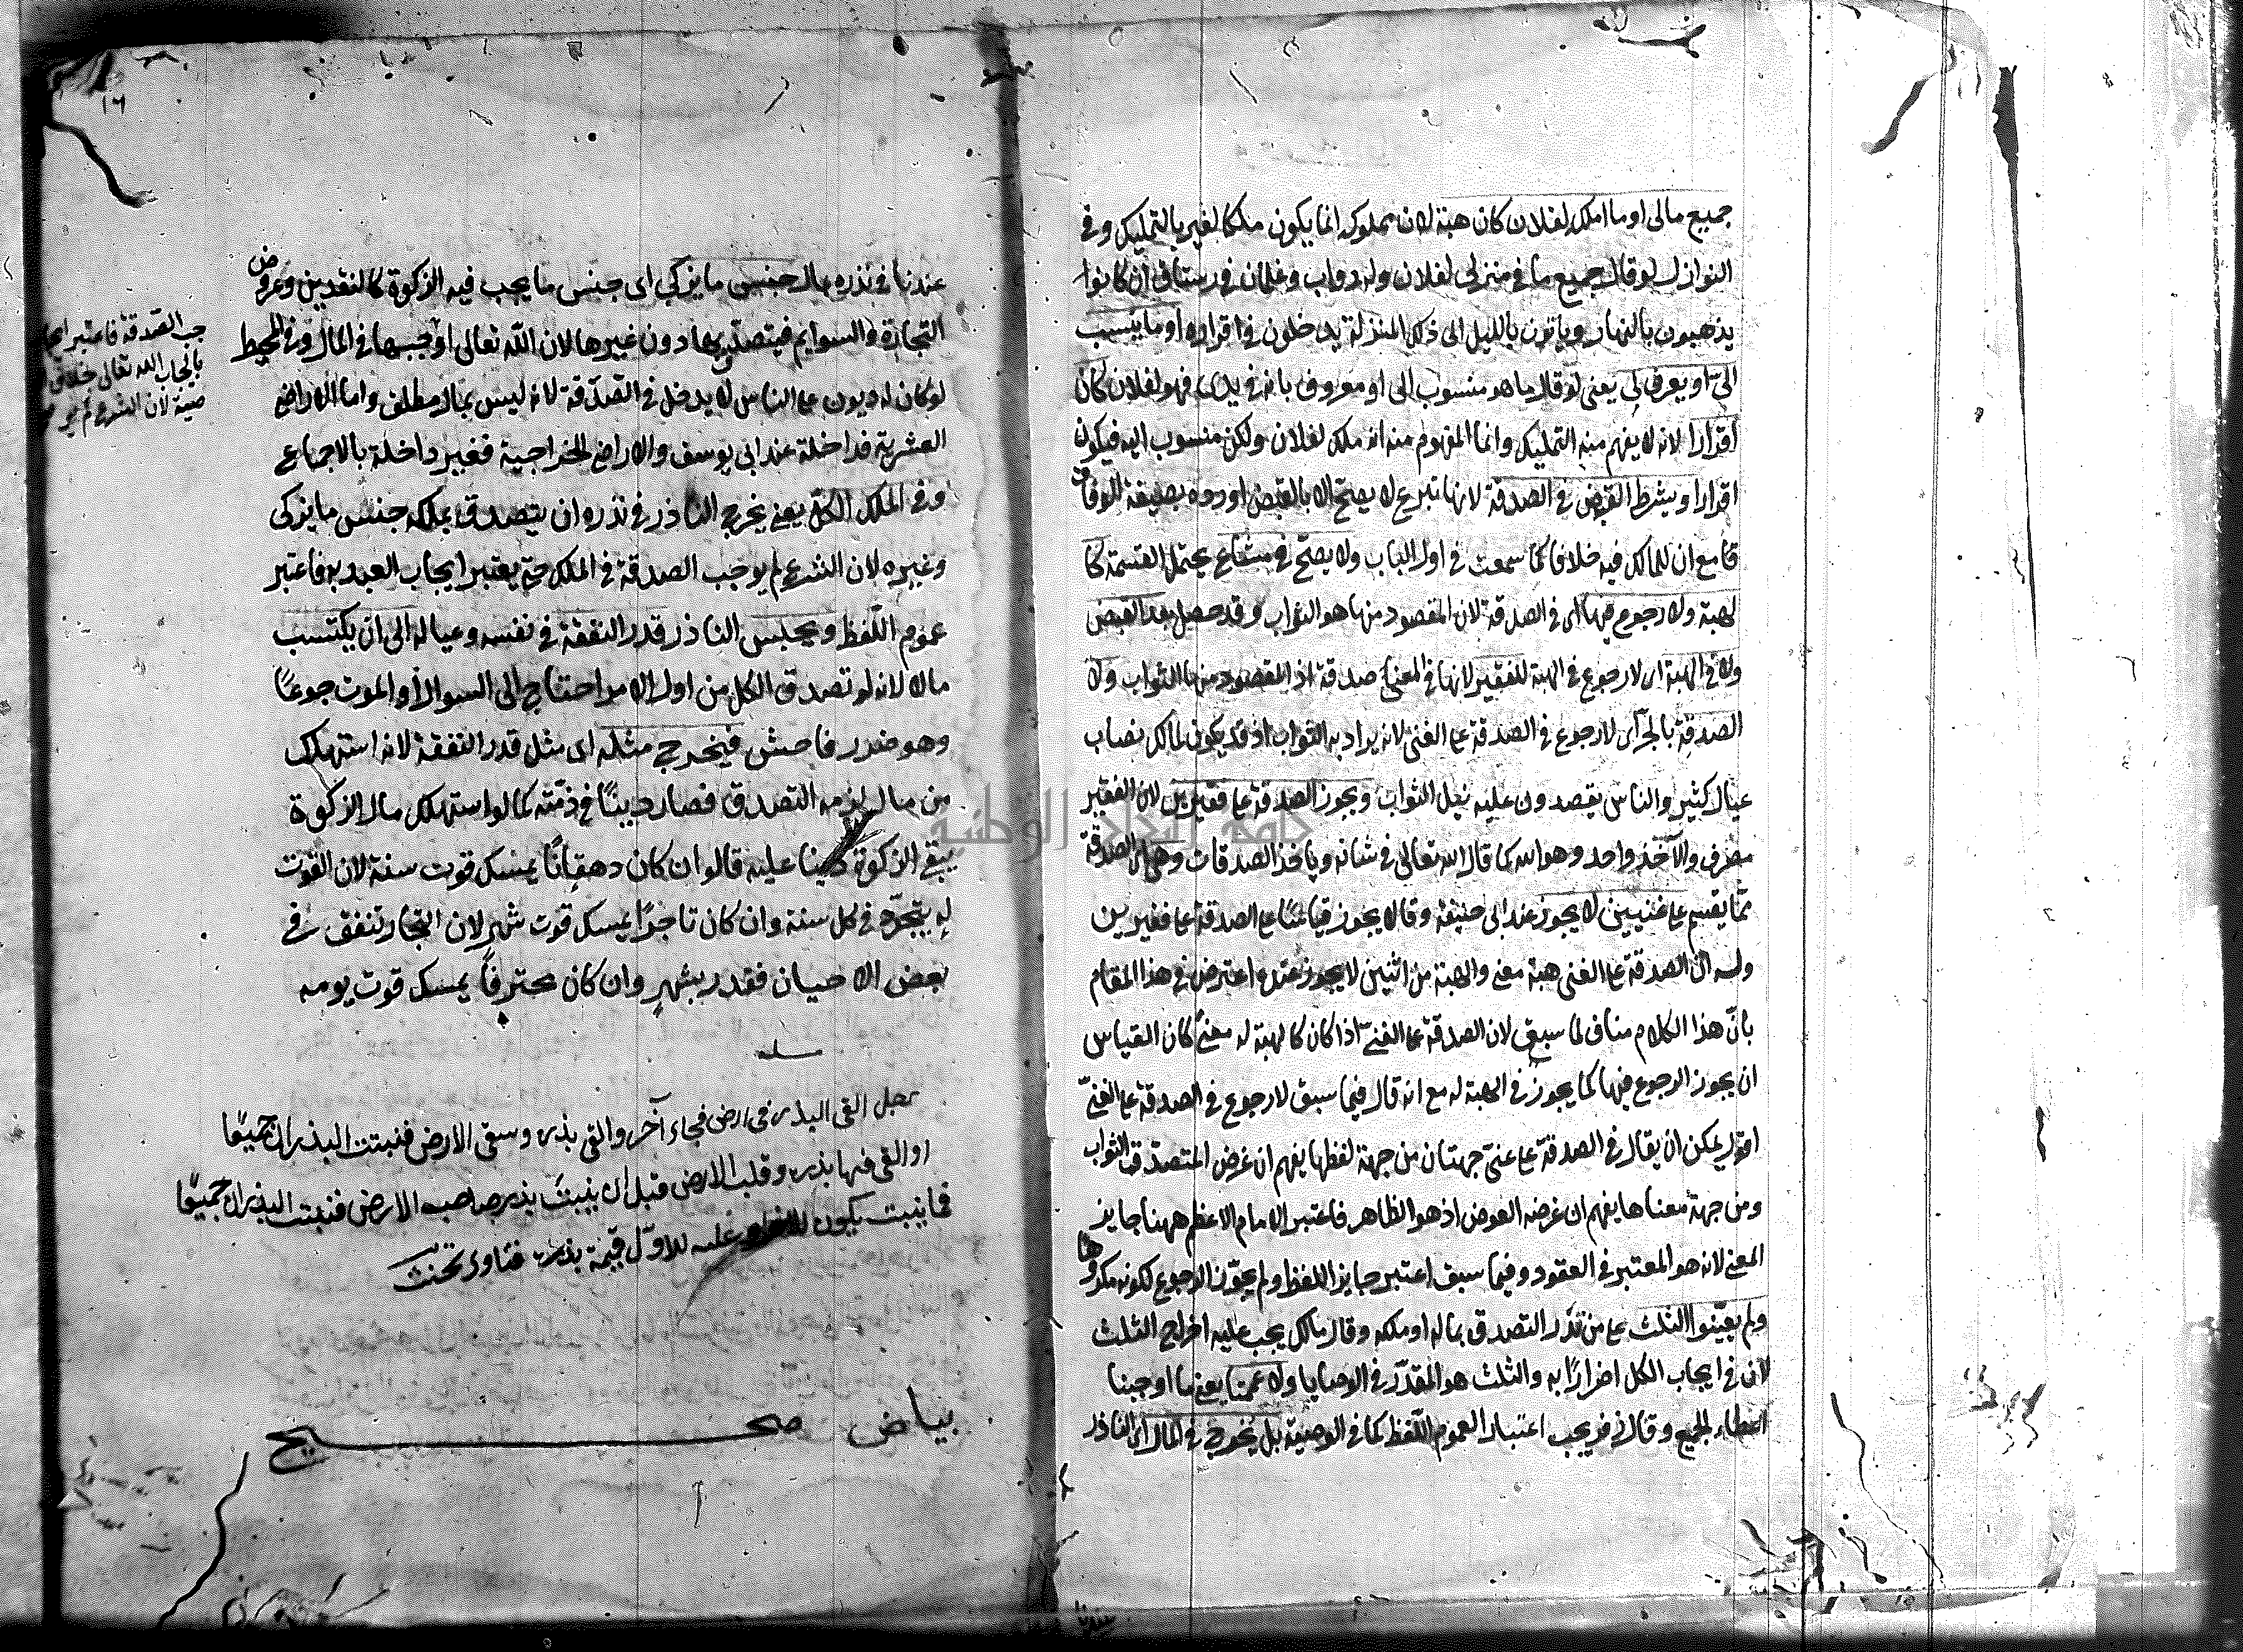 جميع مالى او ما املكه لفلان كان هبة لان مملوكه انما يكون ملكا لغيره بالتمليك وفى
النوازل لو قال جميع ما فى منزلى لفلان وله دواب وغلمان فى رستاق ان كانوا
يذهبون بالنهار وياتون بالليل الى ذلك المنزل يدخلون فى اقراره او ما ينسب
الىّ او يعرف لى يعنى لو قال ما هو منسوب الى او معروف بانه فى يدى فهو لفلان كان
اقرارا لانه لا يفهم منه التمليك وانما المفهوم منه انه ملك لفلان ولكن منسوب اليه فيكون
اقرارا ويشرط القبض فى الصدقة لانها تبرع لا يصح الا بالقبض اورده بصيغة الوفاق
قا مع ان للمالك فيه خلافا كما سمعت فى اول الباب ولا يصح فى مشاع يحتمل القسمة كا
لهبة ولا رجوع فيها اى فى الصدقة لان المقصود منها هو الثواب وقد حصل بعد القبض
ولا فى الهبة اى لا رجوع فى الهبة للفقير لانها فى المعنى صدقة اذ المقصود منها الثواب ولا
الصدقة بالجر اى لا رجوع فى الصدقة على الغنى لانه يراد به الثواب اذ قد يكون لمالك نصاب
عيال كثير والناس يقصدون عليه نيل الثواب ويجوز الصدقة على فقيرين لان الفقير
مصرف والآخذ واحد وهو الله كما قال الله تعالى فى شانه وياخذ الصدقات وهى اى الصدقة
مما يقسم على غنيين لا يجوز عند ابى حنيفة وقالا يجوز قياسا على الصدقة على فقيرين
وله ان الصدقة على الغنى هبة معنى والهبة من اثنين لا يجوز عنده اعترض فى هذا المقام
بانّ هذا الكلام مناف لما سبق لان الصدقة على الغنىّ اذا كان كالهبة له معنى كان القياس
ان يجوز الرجوع فيها كما يجوز فى الهبة له مع انه قال فيما سبق لا رجوع فى الصدقة على الغنىّ
اقول يمكن ان يقال فى الصدقة على غنىّ جهتان من جهة لفظها يفهم ان غرض المتصدّق الثواب
ومن جهة معناها يفهم ان غرضه العوض اذ هو الظاهر فاعتبر الامام الاعظم ههنا جانب
المعنى لانه هو المعتبر فى العقود وفيما سبق اعتبر جانب اللفظ ولم يجوّز الرجوع لكونه مكروها
ولم يعيّنوا الثلث على من نذر التصدق بماله او ملكه وقال مالك يجب عليه اخراج الثلث
لان فى ايجاب الكل اضرارًا به والثلث هو المقدّر فى الوصايا ولا عممنا يعنى ما اوجبنا
اعطاء الجميع وقال زفر يجب اعتبارا لعموم اللفظ كما فى الوصية بل يخرج فى المال اى الناذر
١٦
عندنا فى نذره بمال جنس ما يزكى اى جنس ما يجب فيه الزكوة كالنقدين وعروض
التجارة والسوايم فيتصدّق بها دون غيرها لان الله تعالى اوجبها فى المال وفى المحيط
لو كان له ديون على الناس لا يدخل فى الصدقة لانه ليس بمال مطلق واما الاراضى
العشرية فداخلة عند ابى يوسف والاراضى الخراجية فغير داخلة بالاجماع
وفى الملك الكلّ يعنى يخرج الناذر فى نذره ان يتصدق بملكه جنس ما يزكى
وغيره لان الشرع لم يوجب الصدقة فى الملك حتى يعتبر ايجاب العبد به فاعتبر
عموم اللفظ ويحبس الناذر قدر النفقة فى نفسه وعياله الى ان يكتسب
مالا لانه لو تصدق الكل من اول الامر احتاج الى السوال او الموت جوعًا
وهو ضرر فاحش فيخرج مثله اى مثل قدر النفقة لانه استهلك
من مال لزمه التصدق فصار دينًا فى ذمّته كما لو استهلك مال الزكوة
يبقى الزكوة دينا عليه قالوا ان كان دهقانًا يمسك قوت سنة لان القوت
له يتجدّد فى كل سنة وان كان تاجرًا يمسك قوت شهر لان التجار تنفق فى
بعض الاحيان فقدر بشهرٍ وان كان محترفًا يمسك قوت يومه
جب الصّدقة فاعتبر
بايجاب الله تعالى خلاف
صية لان الشرع لم
رجل القى البذر فى ارض فجاء آخر والقى بذره وسقى الارض فنبتت البذران جميعًا
او القى فيها بذره وقلب الارض قبل ان ينبت بذر صاحب الارض فنبتت البذران جميعًا
فما ينبت يكون عليه للاوّل قيمة بذره فتاوى
بياض صحيح
جامعة النجاح الوطنية